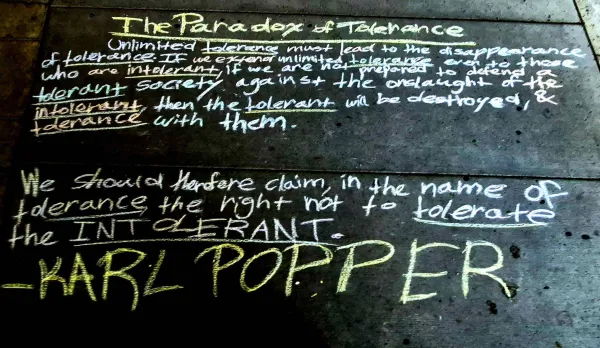 The Paradox of Tolerance
Unlimited tolerance must lead to the disappearance
of tolerance. If we extend unlimited tolerance even to those
who are intolerant, if we are not prepared to defend a
tolerant society against the onslaught of the
intolerant, then the tolerant will be destroyed, &
tolerance with them.
We should therefore claim, in the name of
tolerance, the right not to tolerate
the INTOLERANT.
-KARL POPPER